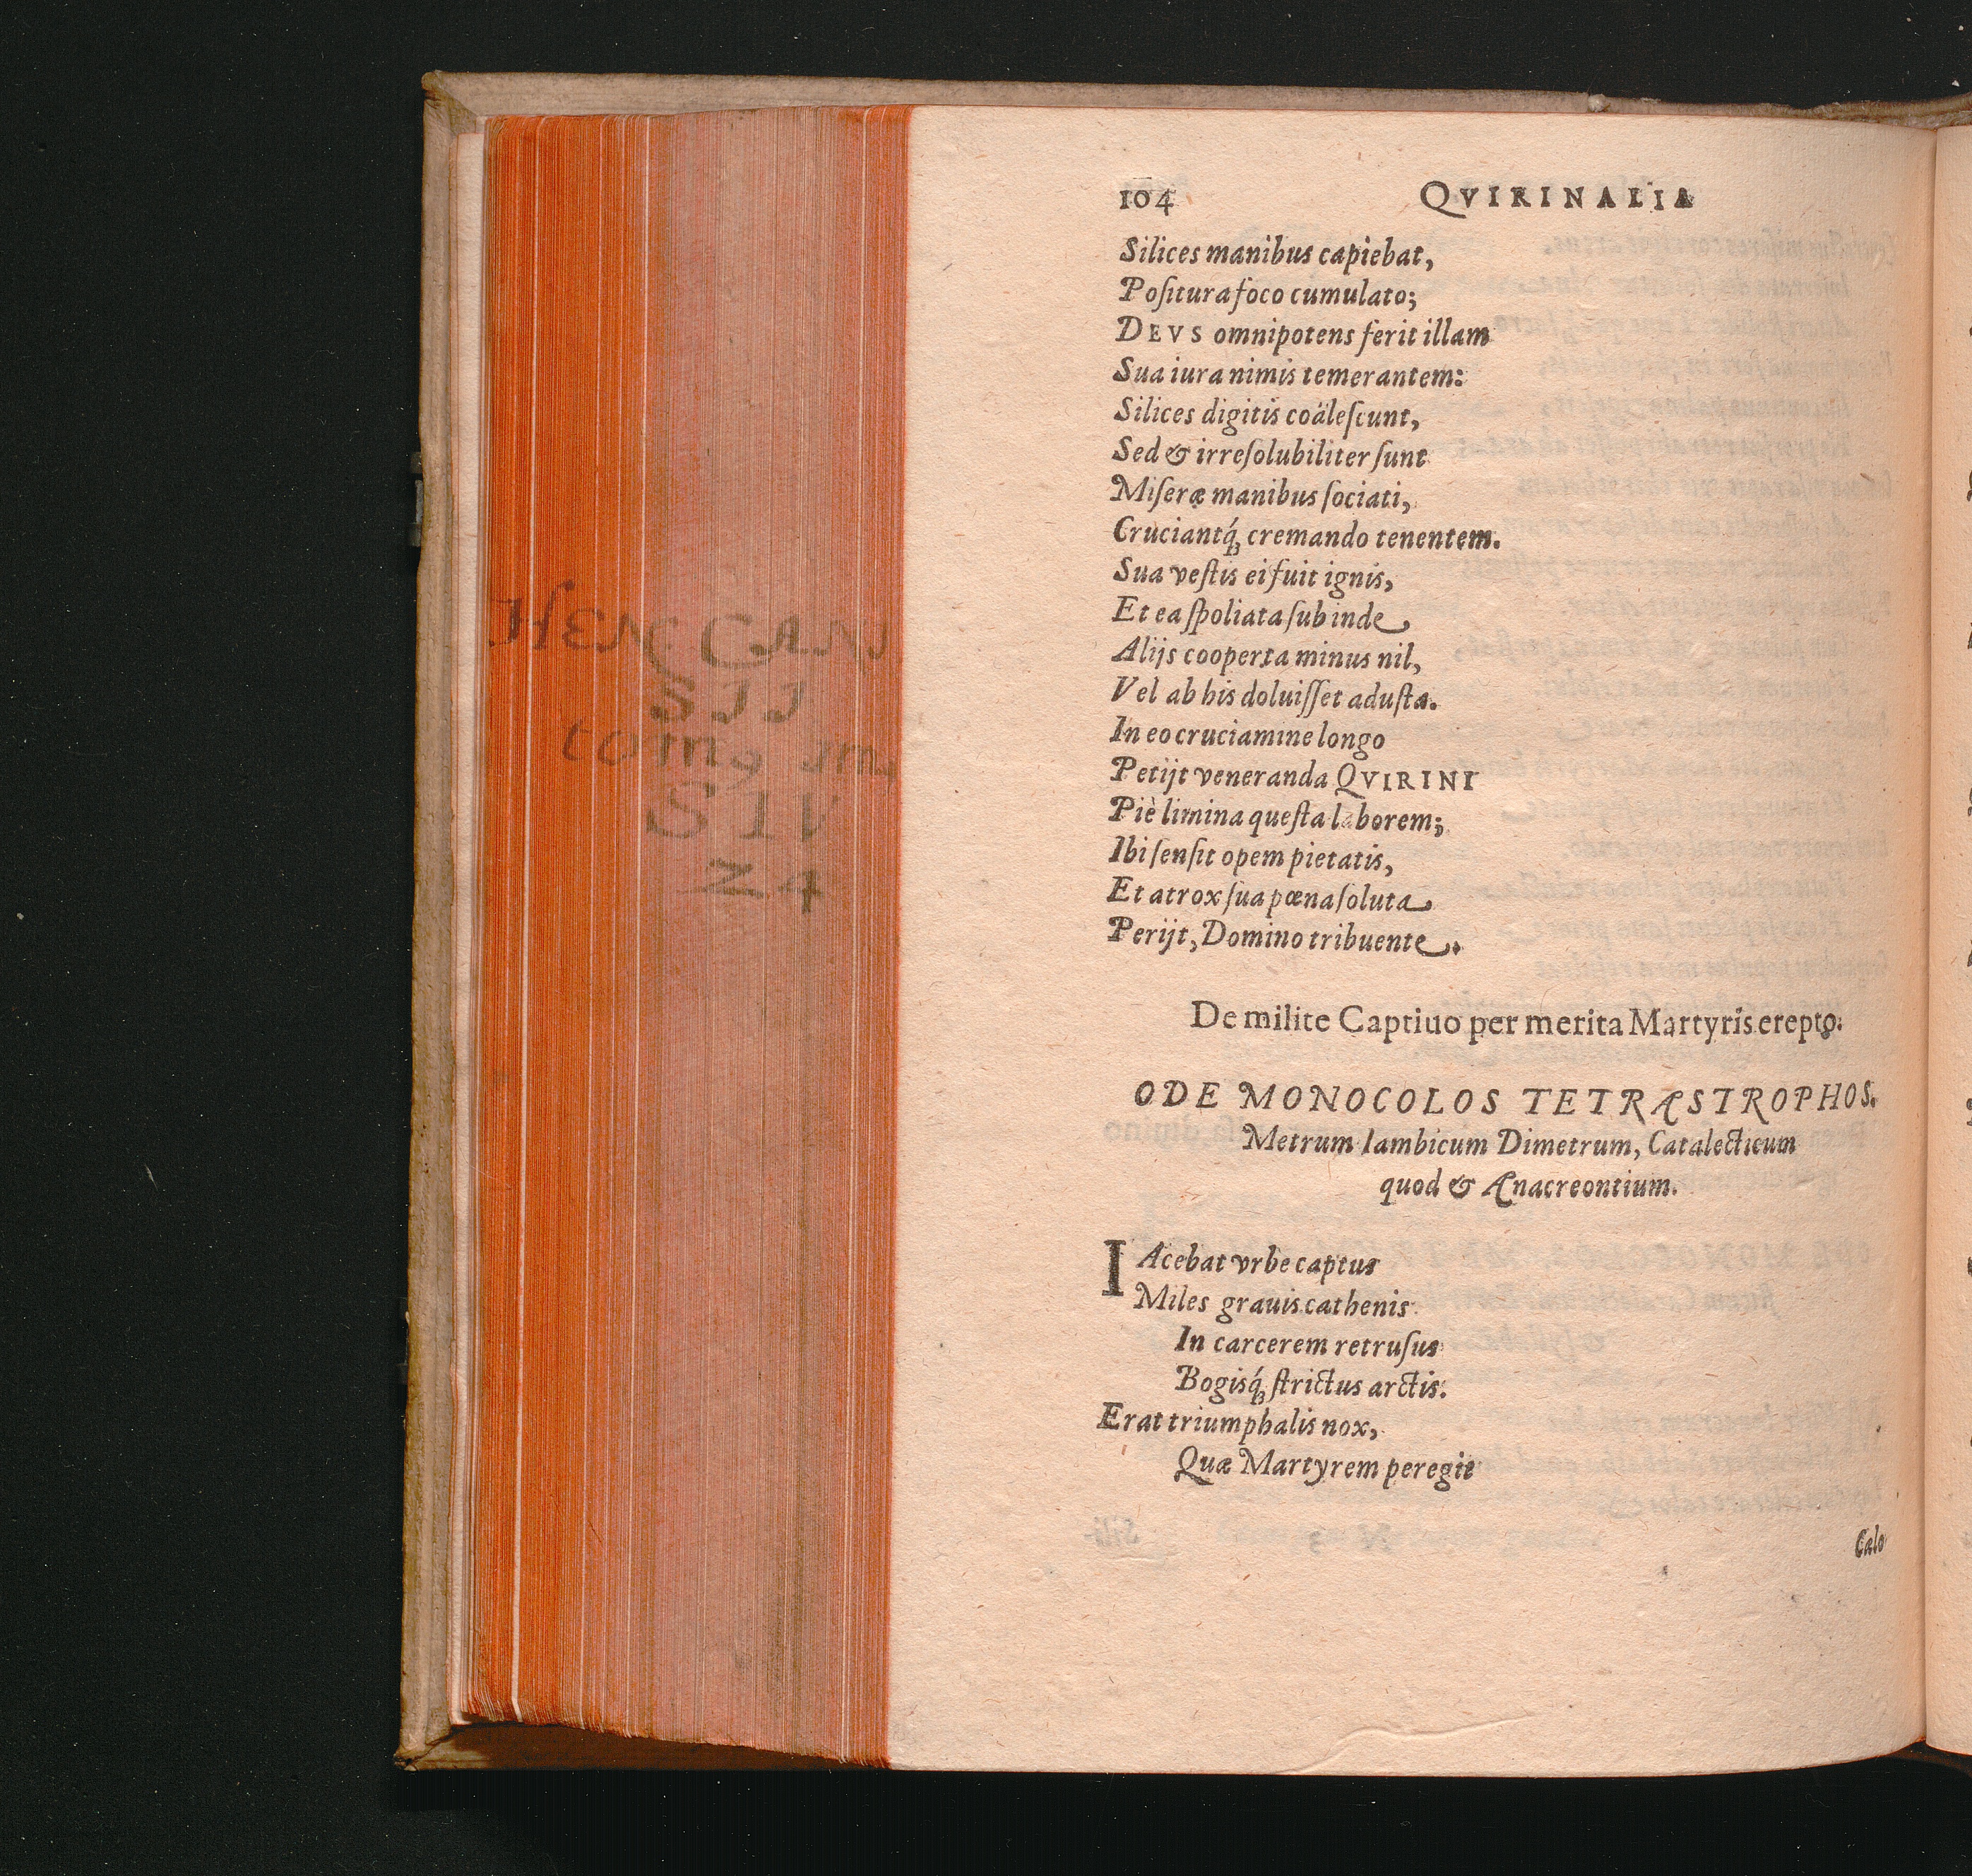 104 QVIRINALIA
Silices manibus capiebat,
Poſitura foco cumulato;
DEVS omnipotens ferit illam
Sua iura nimis temerantem:
Silices digitis coäleſcunt,
Sed & irreſolubiliter ſunt
Miſeræ manibus ſociati,
Cruciantq́; cremando tenentem.
Sua veſtis ei fuit ignis,
Et ea ſpoliata ſubinde
Alijs cooperta minus nil,
Vel ab his doluiſſet aduſta.
In eo cruciamine longo
Petijt veneranda QVIRINI
Piè limina queſta laborem;
Ibi ſenſit opem pietatis,
Et atrox ſua pœna ſoluta
Perijt, Domino tribuente.
De milite Captiuo per merita Martyris erepto.
ODE MONOCOLOS TETRASTROPHOS.
Metrum Iambicum Dimetrum, Catalecticum
quod & Anacreontium.
IAcebat vrbe captus
Miles grauis cathenis
In carcerem retruſus
Bogisq́; ſtrictus arctis.
Erat triumphalis nox,
Quæ Martyrem peregit
Calo
SII
S IV
24